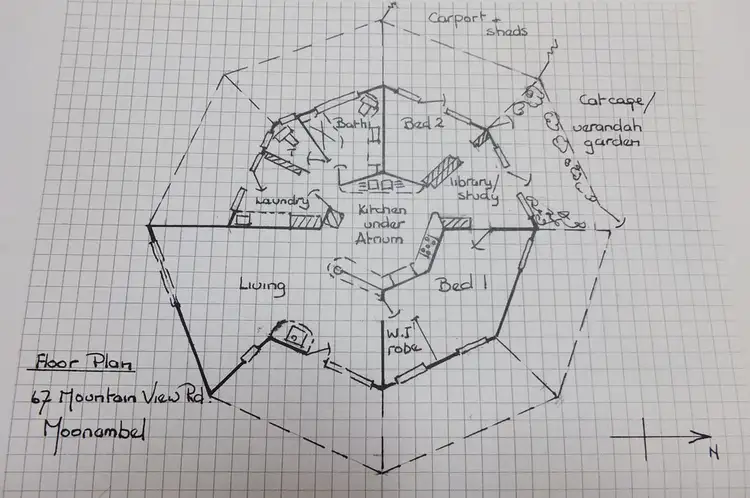 Carport +
sheds
Cat cage/
verandah
garden
Bath
Bed 2
Laundry
library/
study
Kitchen
under
Atrium
Living
Bed 1
W.I
robe
Floor Plan
67 Mountain View Rd.
Moonambel
N